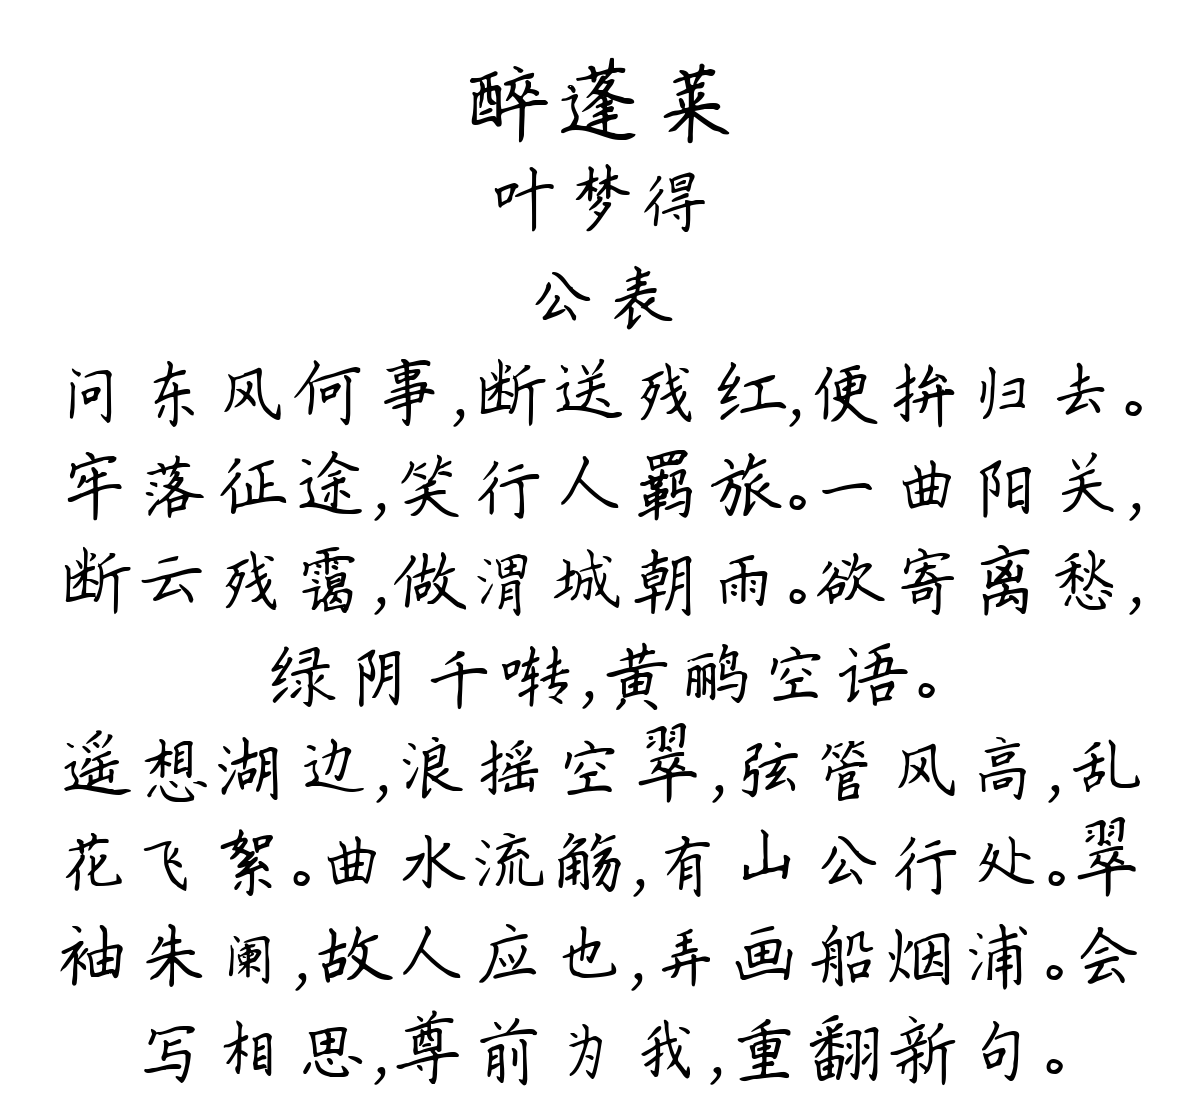 醉蓬莱
叶梦得
公表
问东风何事,断送残红,便拚归去。
牢落征途,笑行人羁旅。一曲阳关,
断云残霭,做渭城朝雨。欲寄离愁,
绿阴千啭,黄鹂空语。
遥想湖边,浪摇空翠,弦管风高,乱
花飞絮。曲水流觞,有山公行处。翠
袖朱阑,故人应也,弄画船烟浦。会
写相思,尊前为我,重翻新句。